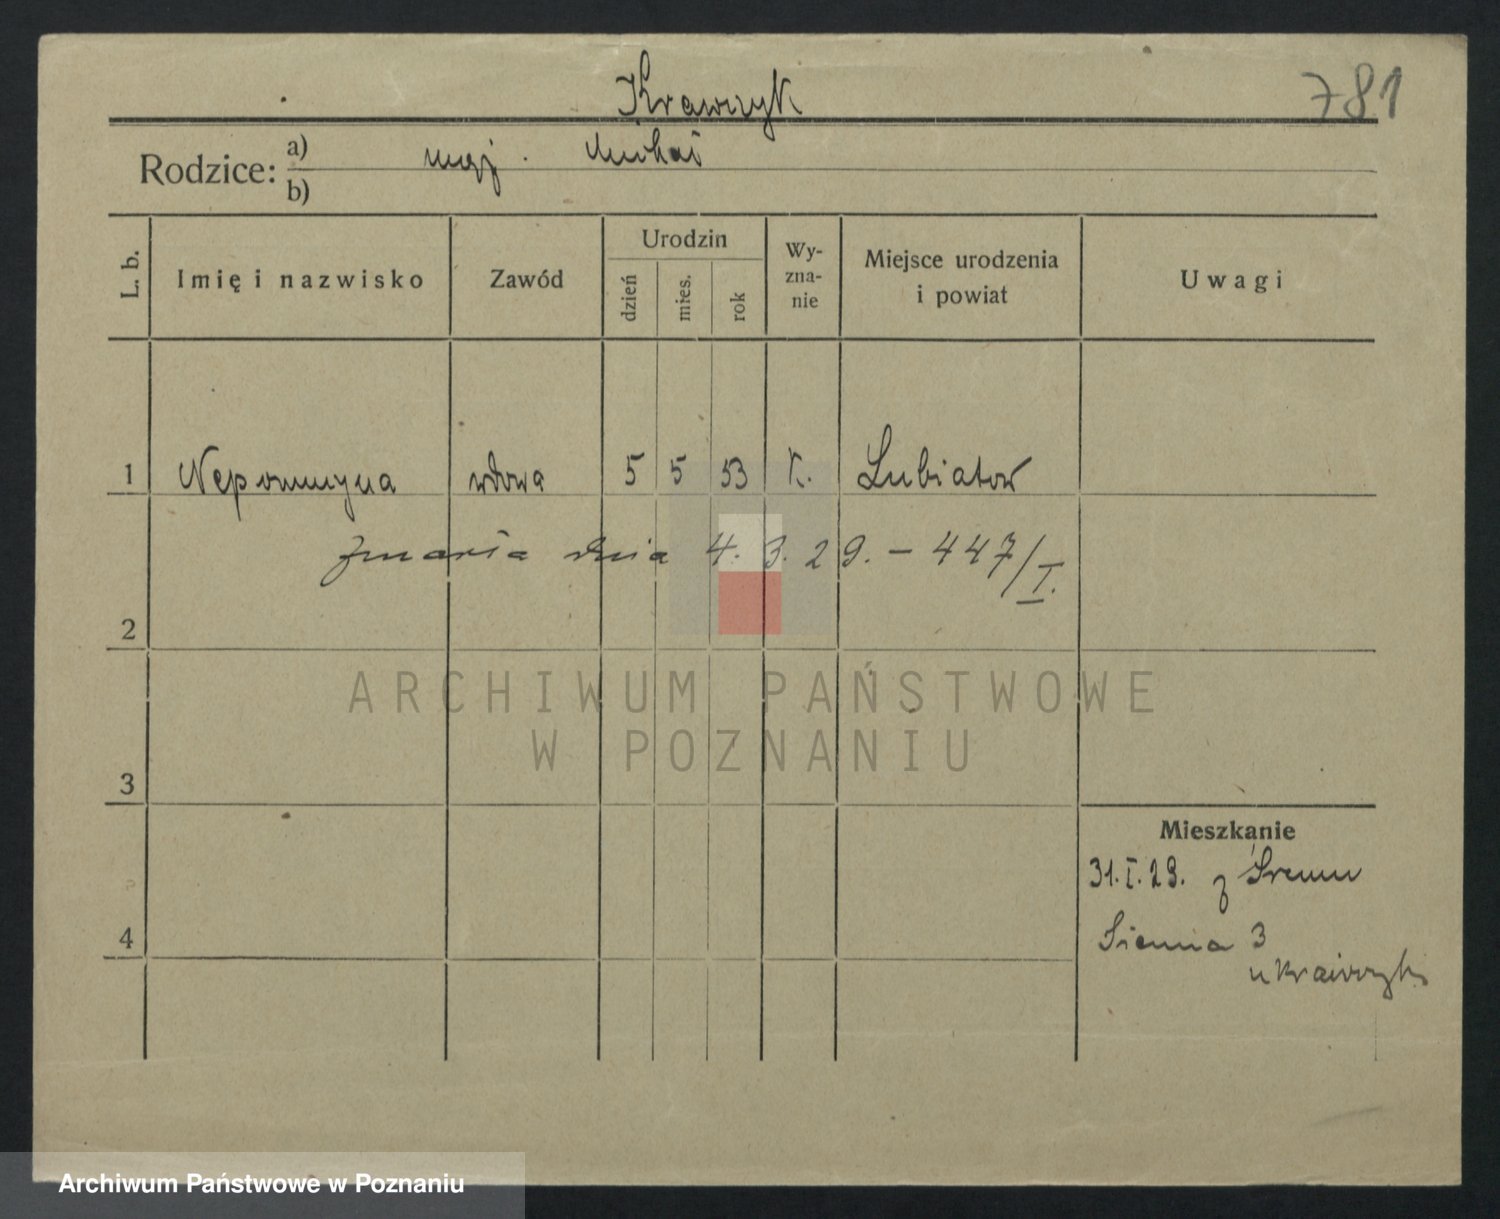 Krawczyk
781
Rodzice: a) mąż. Michał
b)
L. b.
Imię i nazwisko
Zawód
Urodzin
dzień
mies.
rok
Wy-
zna-
nie
Miejsce urodzenia
i powiat
Uwagi
1 Nepomucyna wdowa 5 5 53 K. Lubiatow
zmarła dnia 4. 3. 29. - 447/I.
2
3
4
Mieszkanie
31.I.29. z Śremu
Sienna 3
u Krawczyk
ARCHIWUM PAŃSTWOWE
W POZNANIU
Archiwum Państwowe w Poznaniu